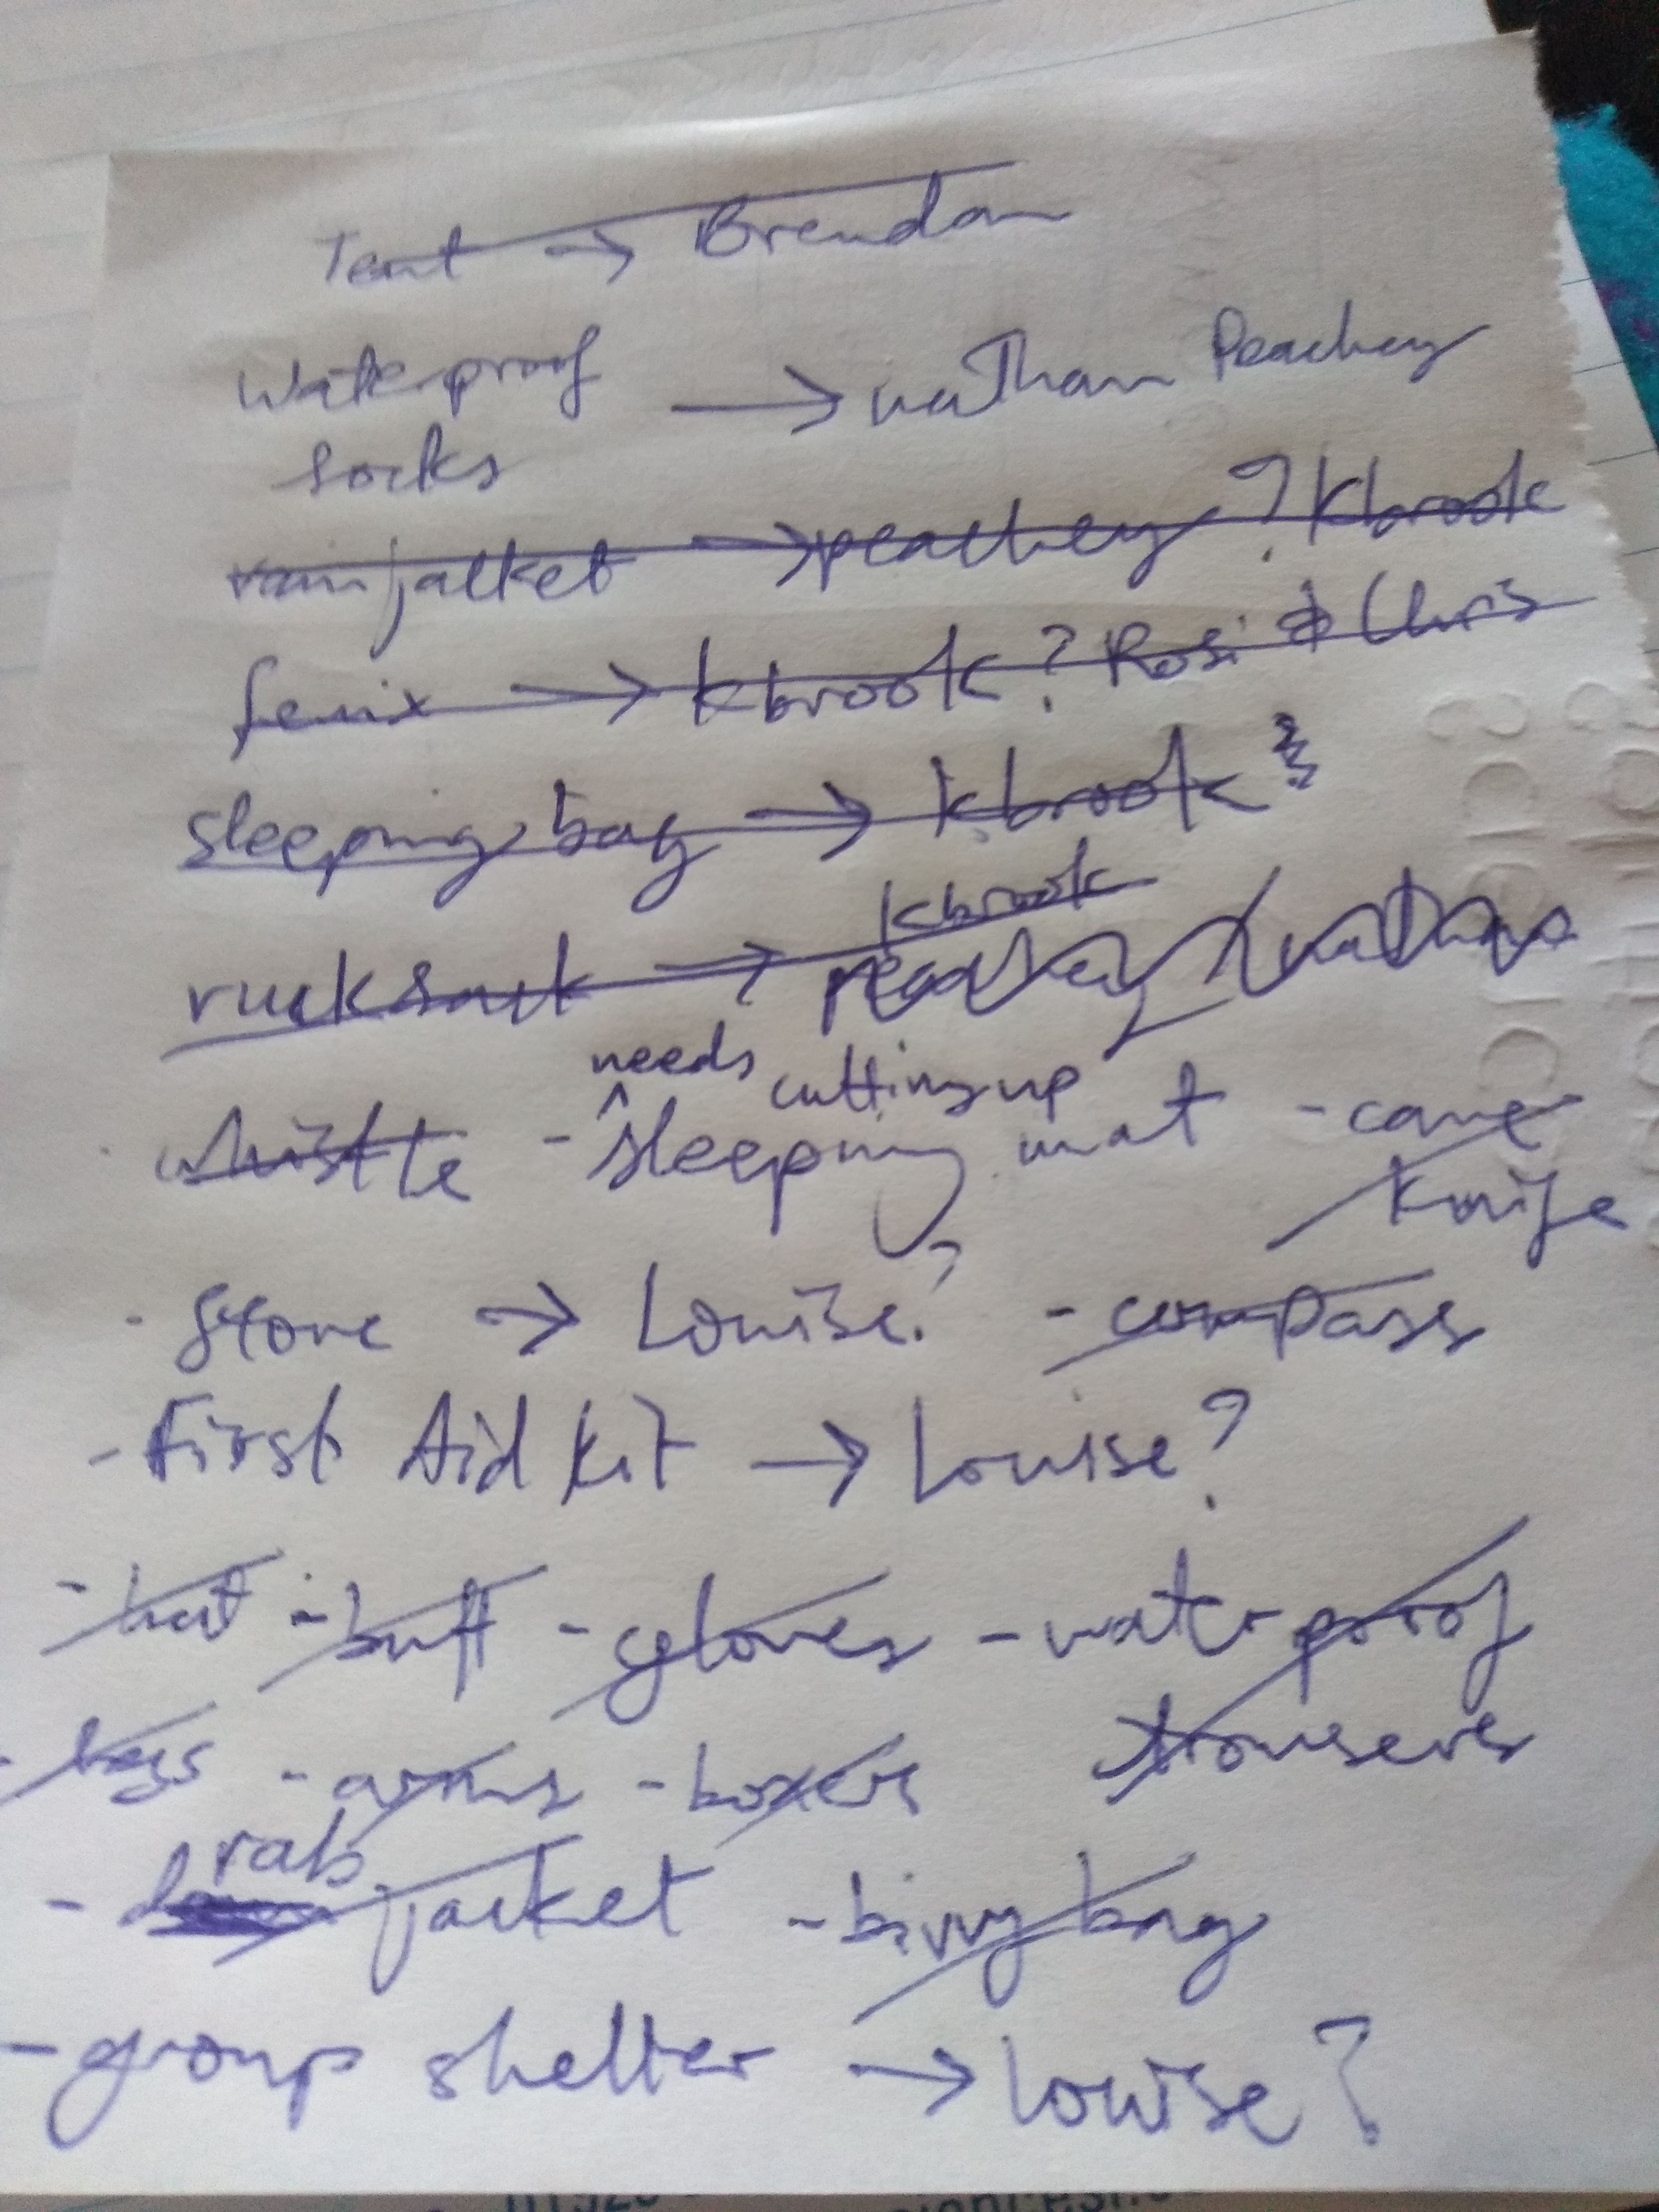 Tent → Brendan
Waterproof → nathan Peachey
socks
rain jacket → peachey? Kbrook
fenix → kbrook? Rosi & Chris
sleeping bag → kbrook
kbrook
rucksack → peachey / nathan
needs cutting up
whistle - ^sleeping mat - came
knife
- stove → Louise? - compass
- First Aid Kit → Louise?
- hat - buff - gloves - waterproof
trousers
- legs - arms - boxers
rab
- down jacket - bivvy bag
- group shelter → Louise?